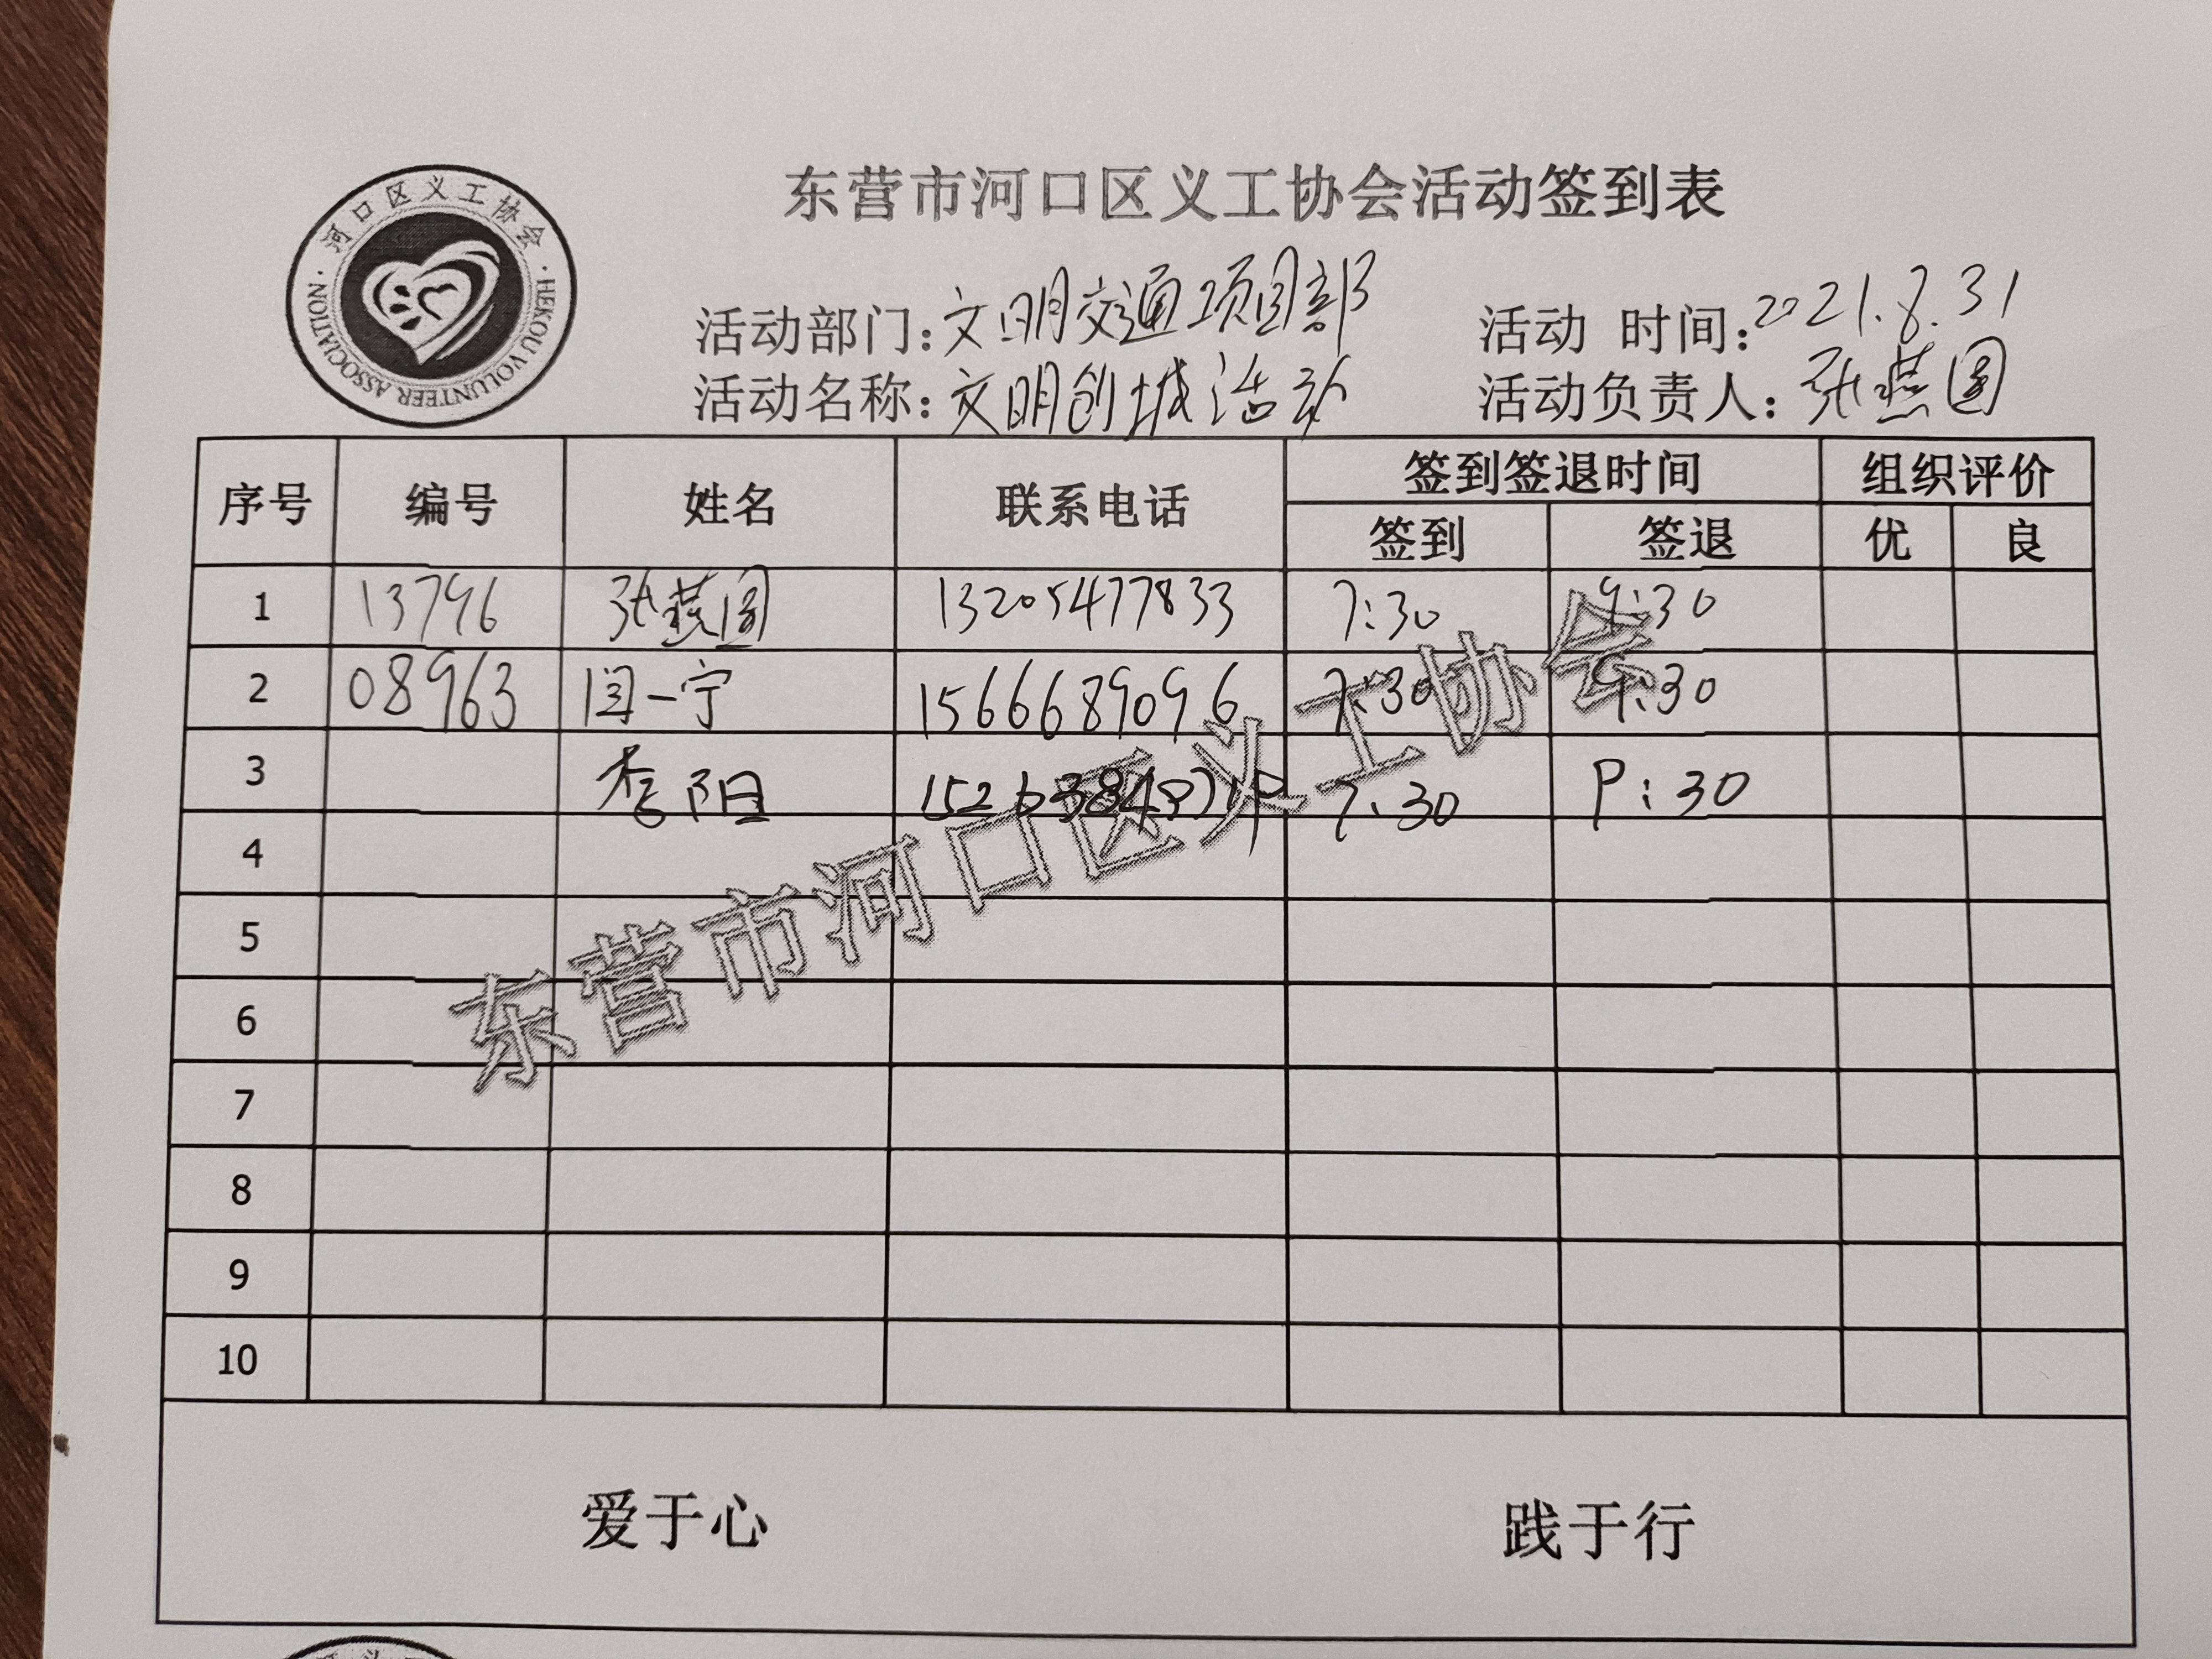 河口区义工协会
HEKOU VOLUNTEER ASSOCIATION
东营市河口区义工协会活动签到表
活动部门：文明交通项目部 活动 时间：2021.8.31
活动名称：文明创城活动 活动负责人：张燕圆
序号 编号 姓名 联系电话 签到签退时间 组织评价
签到 签退 优 良
1 13796 张燕圆 13205477833 7:30 9:30
2 08963 闫一宁 15666689096 7:30 9:30
3 李阳 7:30 9:30
4
5
6
7
8
9
10
东营市河口区义工协会
爱于心 践于行